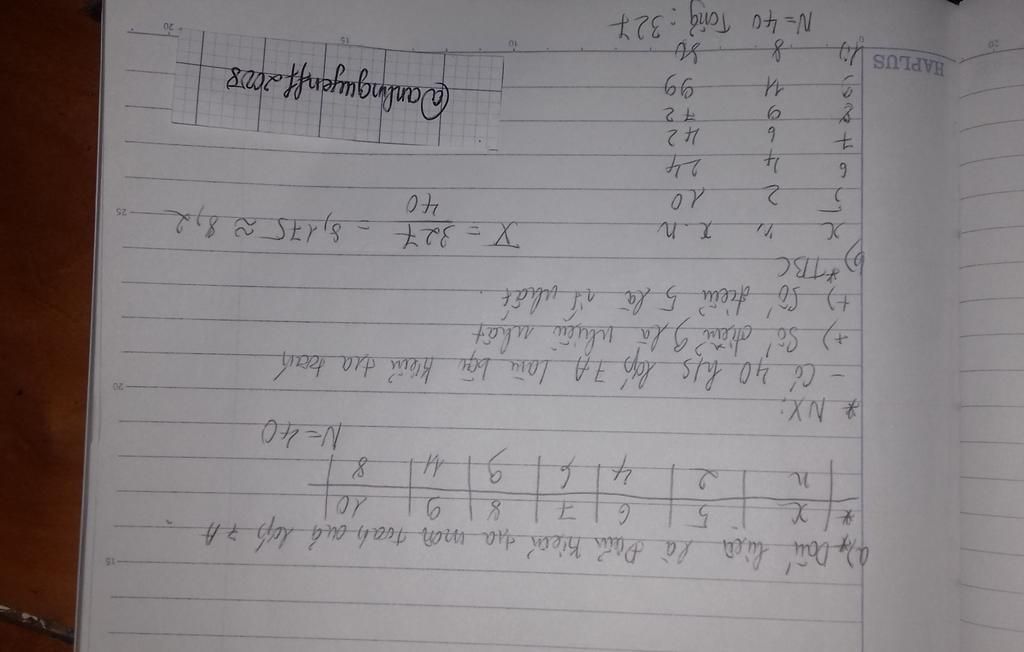 a)* Dấu hiệu là Điểm kiểm tra môn toán của lớp 7A
* x 5 6 7 8 9 10
n 2 4 6 9 11 8 N=40
* NX:
- Có 40 h/s lớp 7A làm bài kiểm tra toán
+) Số điểm 9 là nhiều nhất
+) Số điểm 5 là ít nhất.
b) * TBC
x n x.n X = 327/40 = 8,175 ≈ 8,2
5 2 10
6 4 24
7 6 42
8 9 72
9 11 99
10 8 80
N=40 Tổng: 327
@anhnguyenff2008
HAPLUS
15
20
25
20
15
10
20